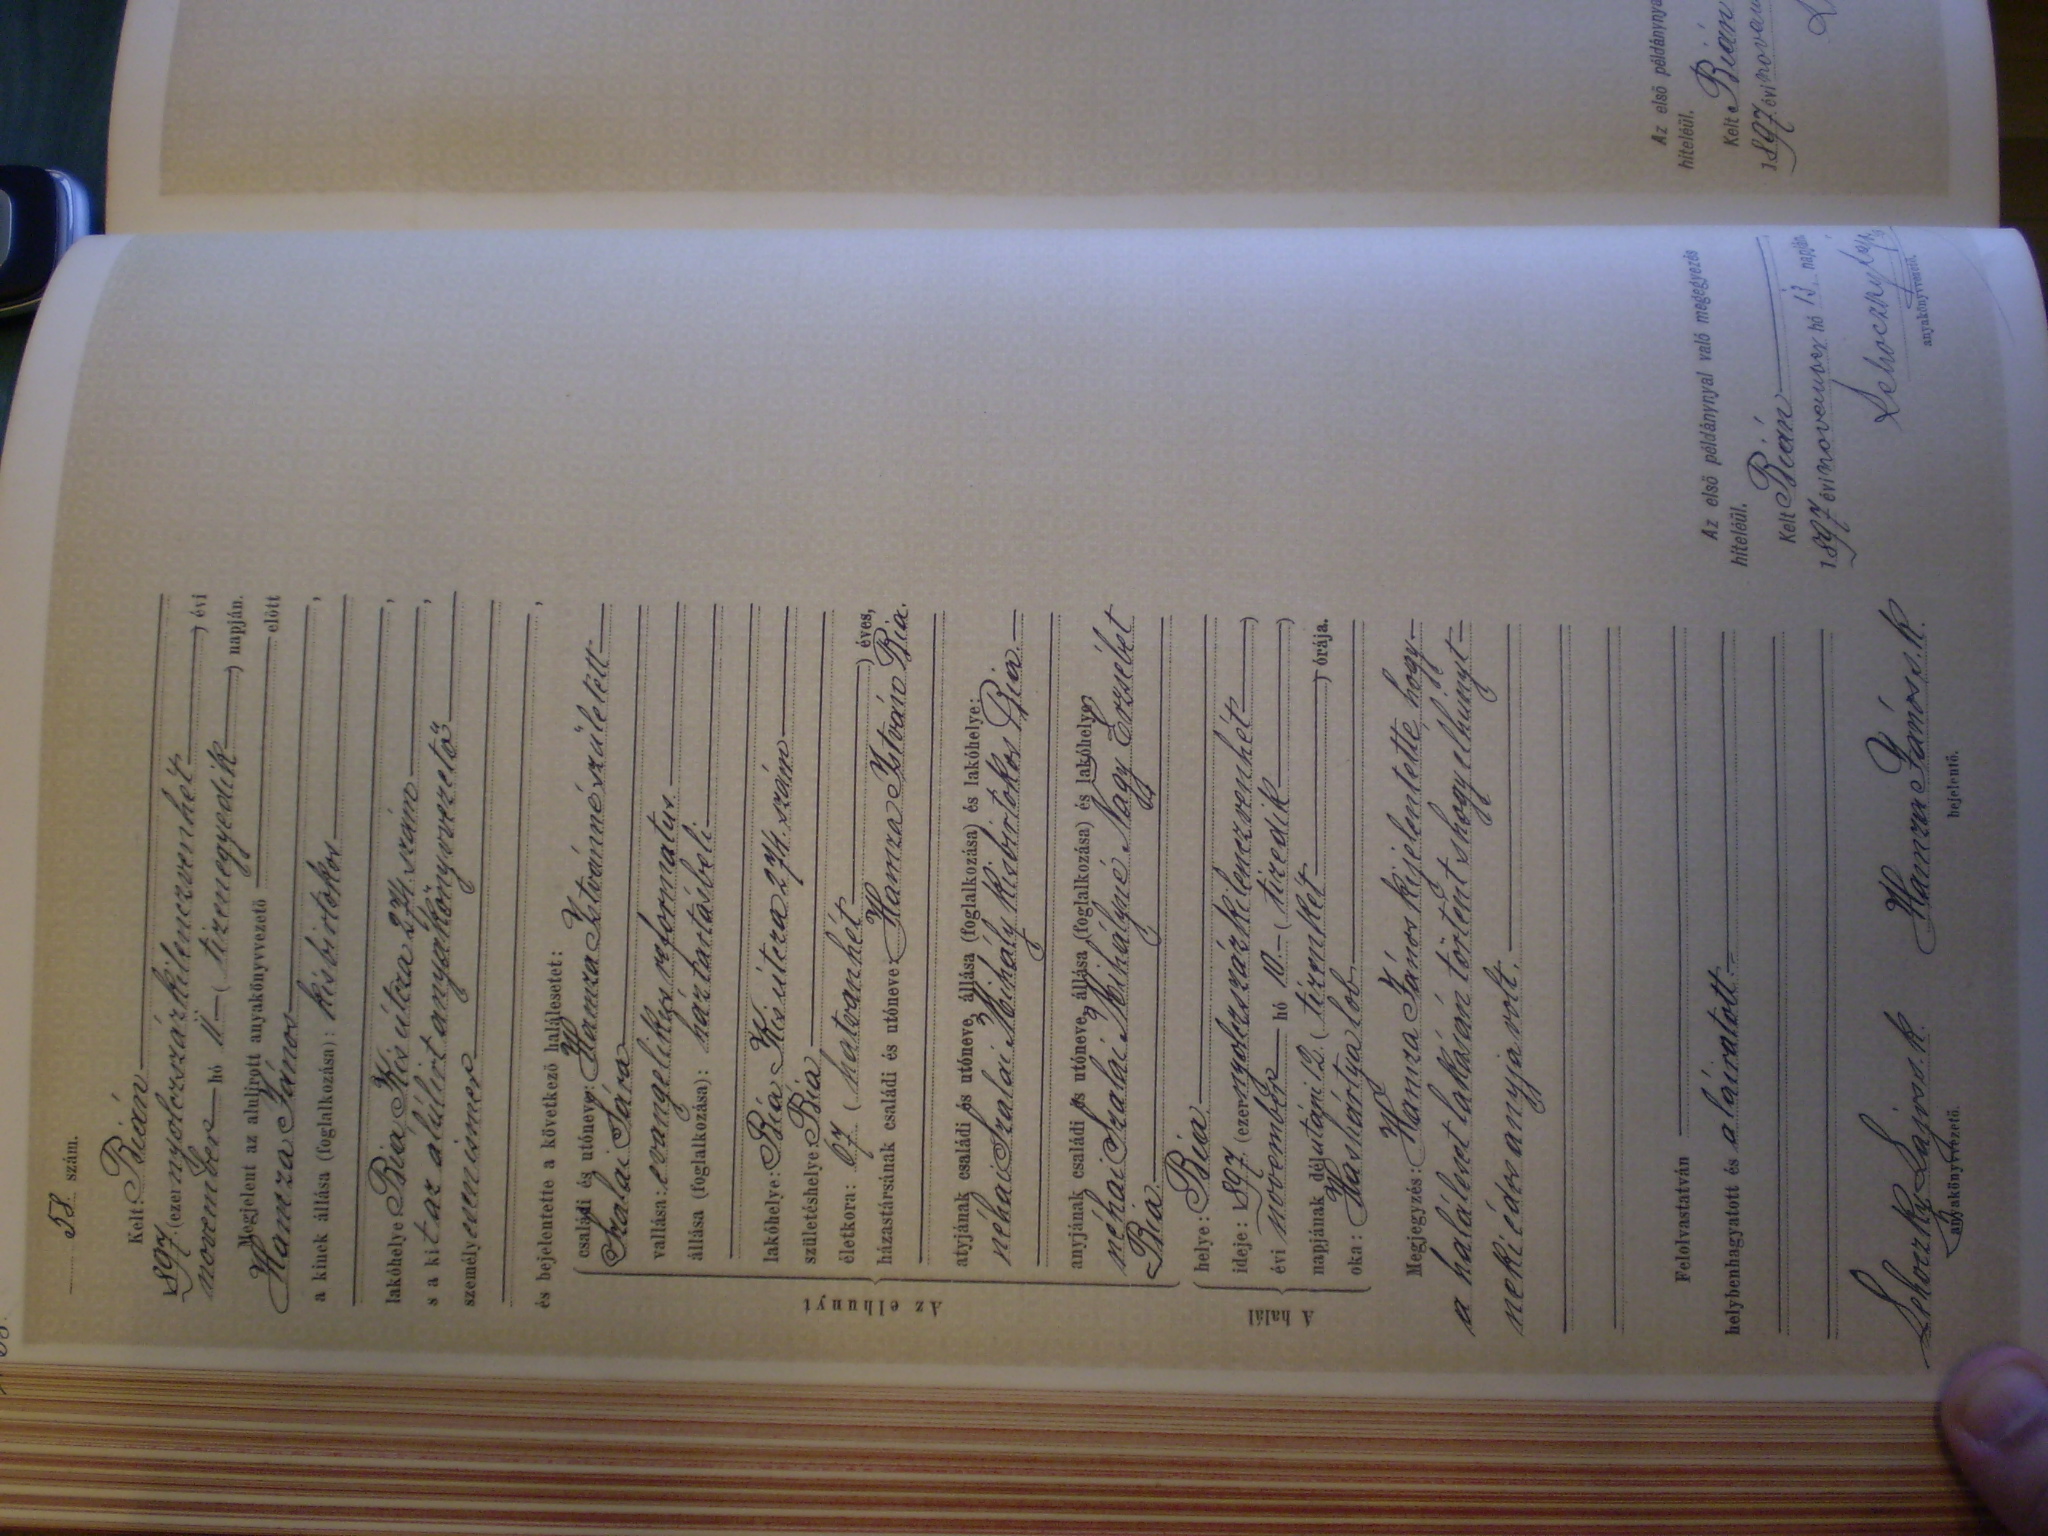 58 szám.
Kelt: Bián
1897 (ezernyolczszázkilenczvenhét) évi
november hó 11 (tizenegyedik) napján.
Megjelent az alulirott anyakönyvvezető előtt
Hamza János
a kinek állása (foglalkozása): kisbirtokos,
lakóhelye Bia Kis útcza 274. szám,
s a kit az alúlirt anyakönyvvezető,
személyesen ismer
és bejelentette a következő halálesetet:
Az elhunyt
családi és utóneve: Hamza Istvánné született
Szalai Sára
vallása: evangelikus reformatus.
állása (foglalkozása): háztartásbeli
lakóhelye: Bia Kis útcza 274. szám
születéshelye Bia
életkora: 67 (hatvanhét) éves,
házastársának családi és utóneve Hamza István Bia.
atyjának családi és utóneve, állása (foglalkozása) és lakóhelye:
néhai Szalai Mihály kisbirtokos Bia.
anyjának családi és utóneve, állása (foglalkozása) és lakóhelye
néhai Szalai Mihályné Nagy Erzsébet
Bia.
A halál
helye: Bia
ideje: 1897 (ezernyolczszázkilenczvenhét)
évi november hó 10. (tizedik)
napjának délutáni 12. (tizenkét) órája.
oka: Hashártya lob
Megjegyzés: Hamza János kijelentette, hogy
a haláleset lakásán történt s hogy elhunyt
neki édes anyja volt.
Felolvastatván
helybenhagyatott és aláíratott.
Lehoczky Lajos s. k.
anyakönyvvezető.
Hamza János s. k.
bejelentő.
Az első példánynyal való megegyezés
hiteléül.
Kelt Bián
1897 évi november hó 13. napján
Lehoczky
anyakönyvvezető.
Az első példánynya
hiteléül.
Kelt Bián
1897 évi